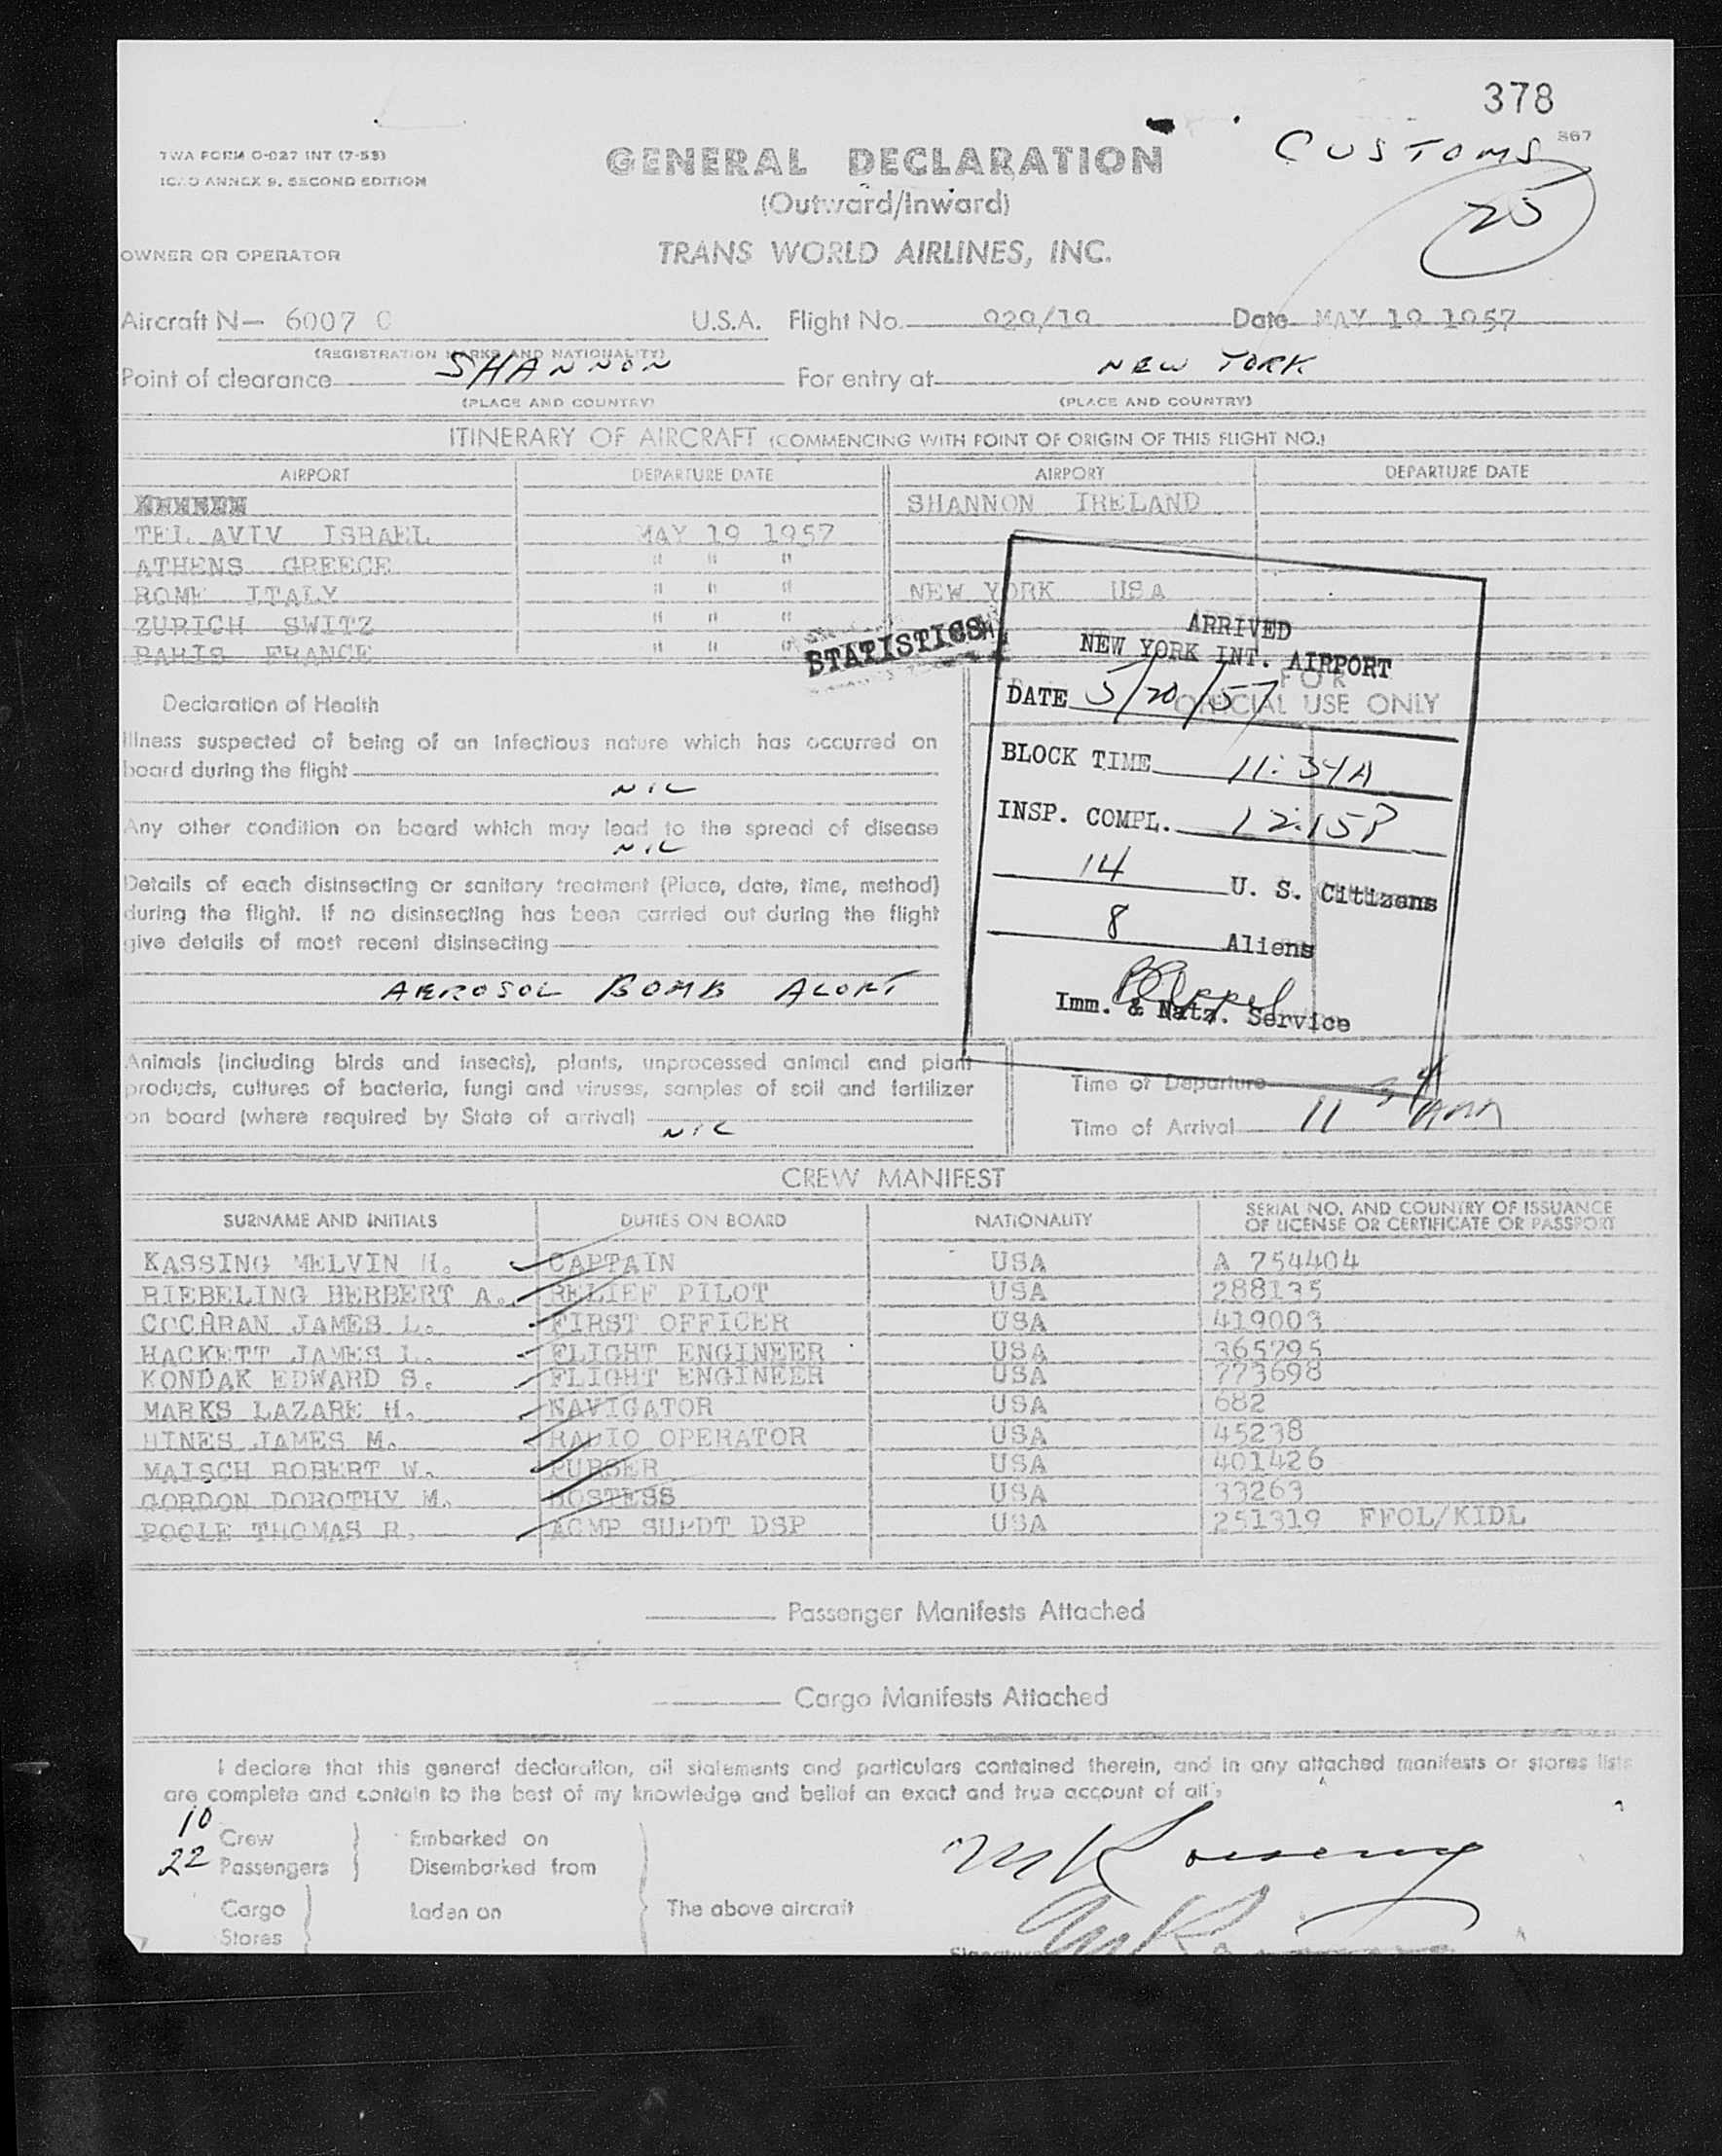 378
CUSTOMS 367
25
TWA FORM O-027 INT (7-53)
ICAO ANNEX 9, SECOND EDITION
GENERAL DECLARATION
(Outward/Inward)
OWNER OR OPERATOR
TRANS WORLD AIRLINES, INC.
Aircraft N— 6007 C U.S.A. Flight No. 929/19 Date MAY 19 1957
(REGISTRATION MARKS AND NATIONALITY)
Point of clearance SHANNON For entry at NEW YORK
(PLACE AND COUNTRY) (PLACE AND COUNTRY)
ITINERARY OF AIRCRAFT (COMMENCING WITH POINT OF ORIGIN OF THIS FLIGHT NO.)
AIRPORT DEPARTURE DATE AIRPORT DEPARTURE DATE
SHANNON IRELAND
TEL AVIV ISRAEL MAY 19 1957
ATHENS GREECE " " "
ROME ITALY " " " NEW YORK USA
ZURICH SWITZ " " "
PARIS FRANCE " " "
STATISTICS
ARRIVED
NEW YORK INT. AIRPORT
DATE 5/20/57
FOR
OFFICIAL USE ONLY
BLOCK TIME 11:34A
INSP. COMPL. 12:15P
14 U. S. Citizens
8 Aliens
Imm. & Natz. Service
Declaration of Health
Illness suspected of being of an infectious nature which has occurred on
board during the flight
NIL
Any other condition on board which may lead to the spread of disease
NIL
Details of each disinsecting or sanitary treatment (Place, date, time, method)
during the flight. If no disinsecting has been carried out during the flight
give details of most recent disinsecting
AEROSOL BOMB ALOFT
Animals (including birds and insects), plants, unprocessed animal and plant
products, cultures of bacteria, fungi and viruses, samples of soil and fertilizer
on board (where required by State of arrival)
NIL
Time of Departure
Time of Arrival 11 34 AM
CREW MANIFEST
SURNAME AND INITIALS DUTIES ON BOARD NATIONALITY SERIAL NO. AND COUNTRY OF ISSUANCE
OF LICENSE OR CERTIFICATE OR PASSPORT
KASSING MELVIN H. CAPTAIN USA A 754404
RIEBELING HERBERT A. RELIEF PILOT USA 288135
COCHRAN JAMES L. FIRST OFFICER USA 419003
HACKETT JAMES L. FLIGHT ENGINEER USA 365795
KONDAK EDWARD S. FLIGHT ENGINEER USA 773698
MARKS LAZARE H. NAVIGATOR USA 682
HINES JAMES M. RADIO OPERATOR USA 45238
MAISCH ROBERT W. PURSER USA 401426
GORDON DOROTHY M. HOSTESS USA 33263
POOLE THOMAS R. ACMP SUPDT DSP USA 251319 FFOL/KIDL
Passenger Manifests Attached
Cargo Manifests Attached
I declare that this general declaration, all statements and particulars contained therein, and in any attached manifests or stores lists
are complete and contain to the best of my knowledge and belief an exact and true account of all
10 Crew Embarked on
22 Passengers Disembarked from
Cargo Laden on The above aircraft
Stores
Signature